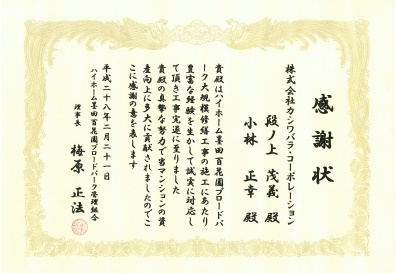 感謝状
株式会社カシワバラ・コーポレーション
段ノ上 茂義 殿
小林 正幸 殿
貴殿はハイホーム墨田百花園ブロードパ
ーク大規模修繕工事の施工にあたり
豊富な経験を生かして誠実に対応し
て頂き工事完遂に至りました
貴殿の真摯な努力で当マンションの資
産向上に多大に貢献されましたのでこ
こに感謝の意を表します
平成二十八年二月二十一日
ハイホーム墨田百花園ブロードパーク管理組合
理事長 梅原 正法